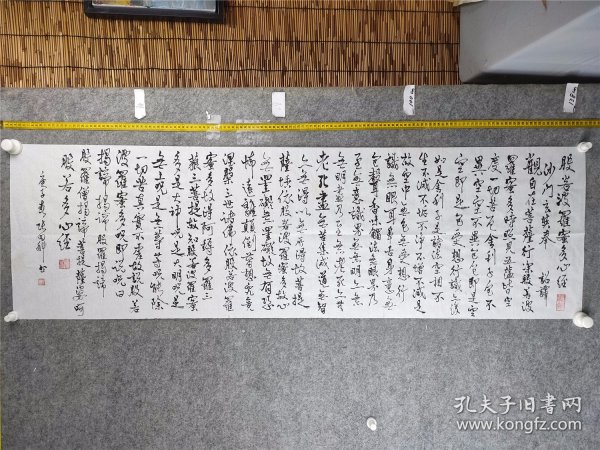 般若波羅蜜多心经
沙门玄奘奉 詔譯
觀自在菩薩行深般若波
羅蜜多時照見五蕴皆空
度一切苦厄舍利子色不
異空空不異色色即是空
空即是色受想行識亦復
如是舍利子是諸法空相不
生不滅不垢不淨不增不減是
故空中無色無受想行
識無眼耳鼻舌身意無
色聲香味觸法無眼界乃
至無意識界無無明亦無
無明盡乃至無老死亦無
老死盡無苦集滅道無智
亦無得以無所得故菩提
薩埵依般若波羅蜜多故心
無罣礙無罣礙故無有恐
怖遠離顛倒夢想究竟
涅槃三世諸佛依般若波羅
蜜多故得阿耨多羅三
藐三菩提故知般若波羅蜜
多是大神咒是大明咒是
無上咒是無等等咒能除
一切苦真實不虛故說般若
波羅蜜多咒即說咒曰
揭諦揭諦 般羅揭諦
般羅僧揭諦菩提薩婆訶
般若多心经
孔夫子旧书网
www.kongfz.com